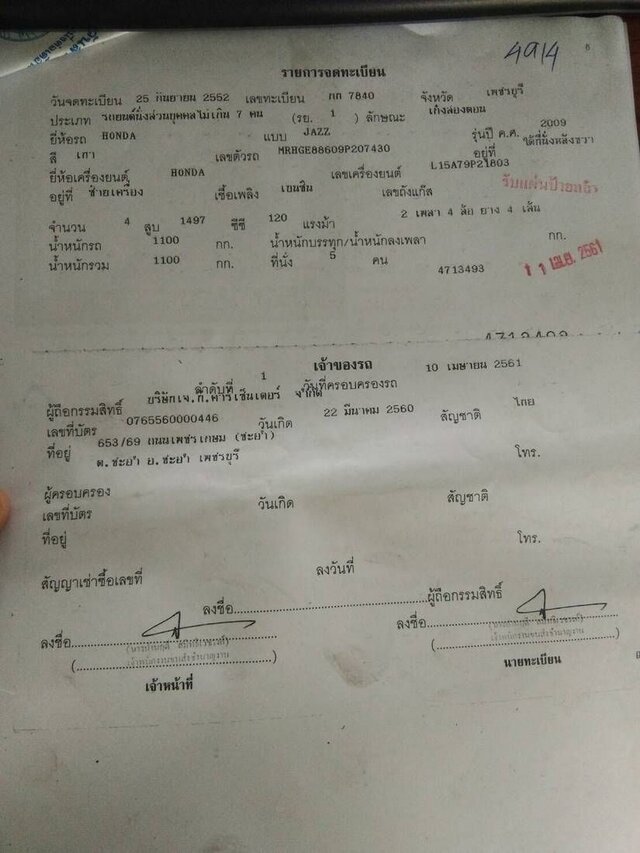 4914
6
รายการจดทะเบียน
วันจดทะเบียน 25 กันยายน 2552 เลขทะเบียน กก 7840 จังหวัด เพชรบุรี
ประเภท รถยนต์นั่งส่วนบุคคลไม่เกิน 7 คน (รย. 1 ) ลักษณะ เก๋งสองตอน
ยี่ห้อรถ HONDA แบบ JAZZ รุ่นปี ค.ศ. 2009
สี เทา เลขตัวรถ MRHGE88609P207430 อยู่ที่ ใต้ที่นั่งหลังขวา
ยี่ห้อเครื่องยนต์ HONDA เลขเครื่องยนต์ L15A79P21803
อยู่ที่ ซ้ายเครื่อง เชื้อเพลิง เบนซิน เลขถังแก๊ส
จำนวน 4 สูบ 1497 ซีซี 120 แรงม้า 2 เพลา 4 ล้อ ยาง 4 เส้น
น้ำหนักรถ 1100 กก. น้ำหนักบรรทุก/น้ำหนักลงเพลา กก.
น้ำหนักรวม 1100 กก. ที่นั่ง 5 คน 4713493
11 เม.ย. 2561
เจ้าของรถ
ลำดับที่ 1 วันที่ครอบครองรถ 10 เมษายน 2561
ผู้ถือกรรมสิทธิ์ บริษัทเจ.ที.คาร์เซ็นเตอร์ จำกัด
เลขที่บัตร 0765560000446 วันเกิด 22 มีนาคม 2560 สัญชาติ ไทย
ที่อยู่ 653/69 ถนนเพชรเกษม (ชะอำ)
ต.ชะอำ อ.ชะอำ เพชรบุรี โทร.
ผู้ครอบครอง
เลขที่บัตร วันเกิด สัญชาติ
ที่อยู่ โทร.
สัญญาเช่าซื้อเลขที่ ลงวันที่
ลงชื่อ ผู้ถือกรรมสิทธิ์
ลงชื่อ ลงชื่อ
เจ้าพนักงานขนส่งชำนาญงาน เจ้าพนักงานขนส่งชำนาญงาน
เจ้าหน้าที่ นายทะเบียน